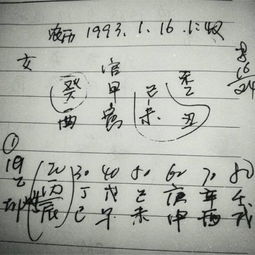 农历 1993.1.16.1:
女 官
癸 甲 己 癸
酉 寅 未 丑
①
19 20 30 40 50 60 70 80
乙 丙 丁 戊 己 庚 辛 壬
卯 辰 巳 午 未 申 酉 戌